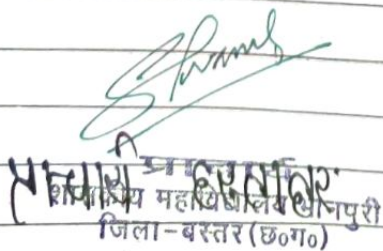 प्राचार्य हस्ताक्षर
महाविद्यालय भानपुरी
जिला-बस्तर (छ०ग०)